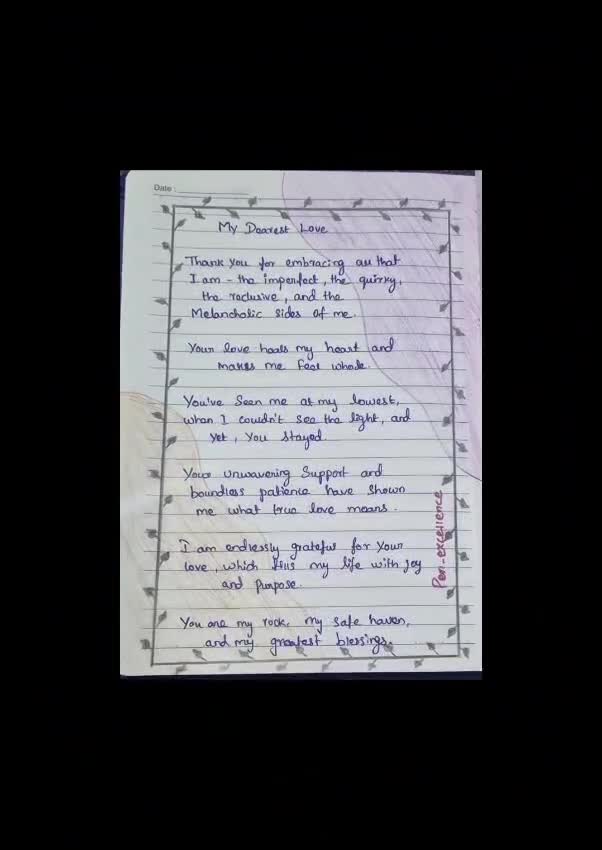 Date :
My Dearest Love
Thank you for embracing all that
I am - the imperfect, the quirky,
the reclusive, and the
Melancholic sides of me.
Your love heals my heart and
makes me feel whole.
You've seen me at my lowest,
when I couldn't see the light, and
yet, you stayed.
Your unwavering Support and
boundless patience have shown
me what true love means.
I am endlessly grateful for your
love, which fills my life with joy
and purpose.
You are my rock, my safe haven,
and my greatest blessings.
Pen-excellence